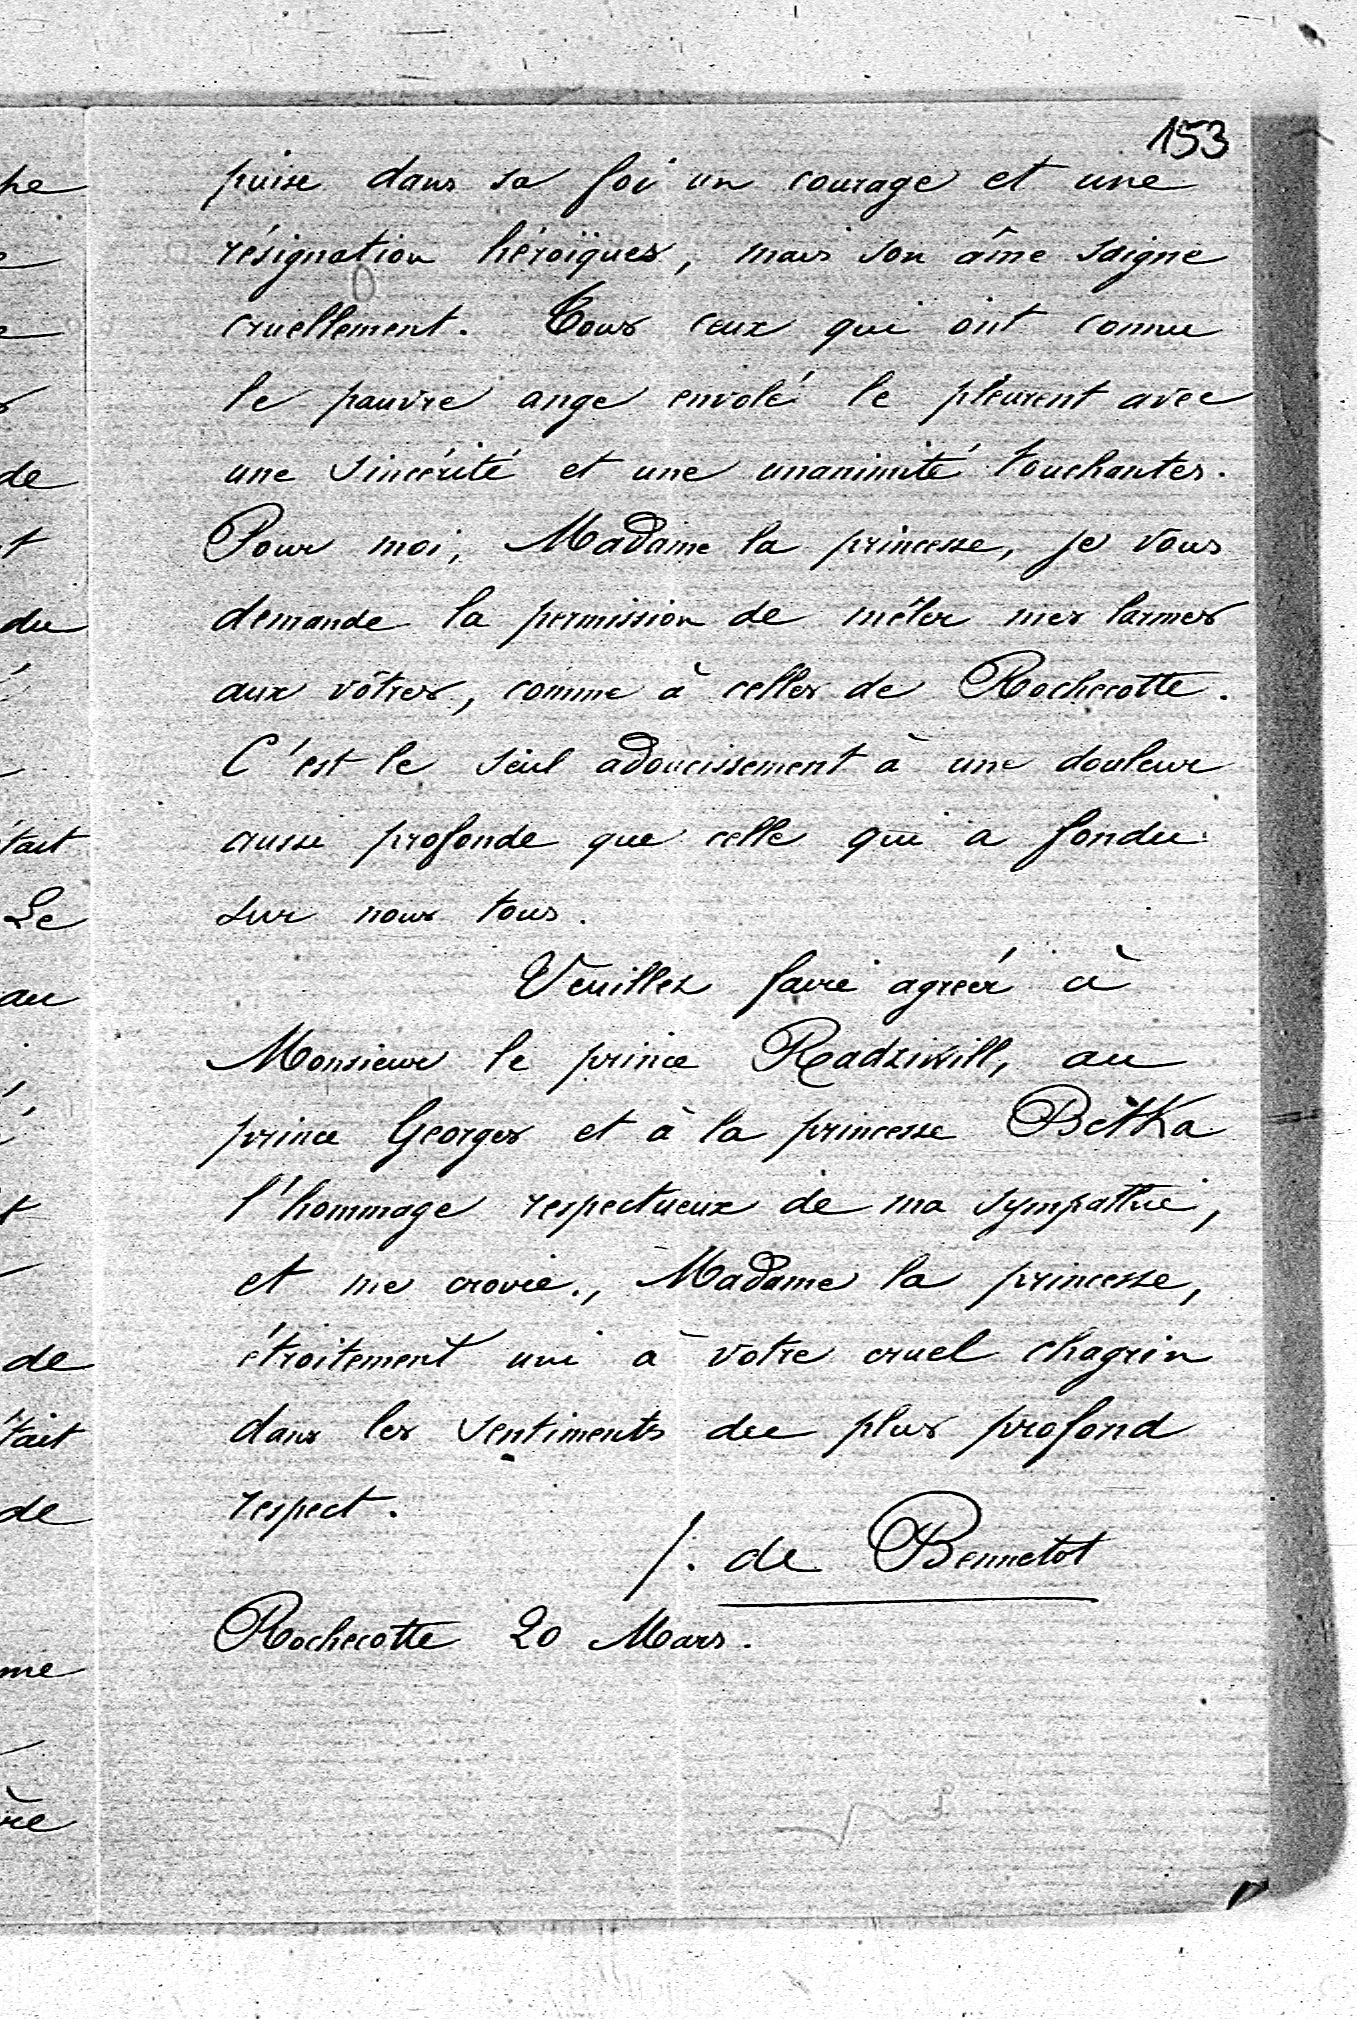 153
puise dans sa foi un courage et une
résignation héroïques, mais son âme saigne
cruellement. Tous ceux qui ont connu
le pauvre ange envolé le pleurent avec
une sincérité et une unanimité touchantes.
Pour moi, Madame la princesse, je vous
demande la permission de mêler mes larmes
aux vôtres, comme à celles de Rochecotte.
C'est le seul adoucissement à une douleur
aussi profonde que celle qui a fondu
sur nous tous.
Veuillez faire agréer à
Monsieur le prince Radziwill, au
prince Georges et à la princesse Bètka
l'hommage respectueux de ma sympathie,
et me croire, Madame la princesse,
étroitement uni à votre cruel chagrin
dans les sentiments du plus profond
respect.
J. de Bennetot
Rochecotte 20 Mars.
de
du
tait
Le
au
de
tait
de